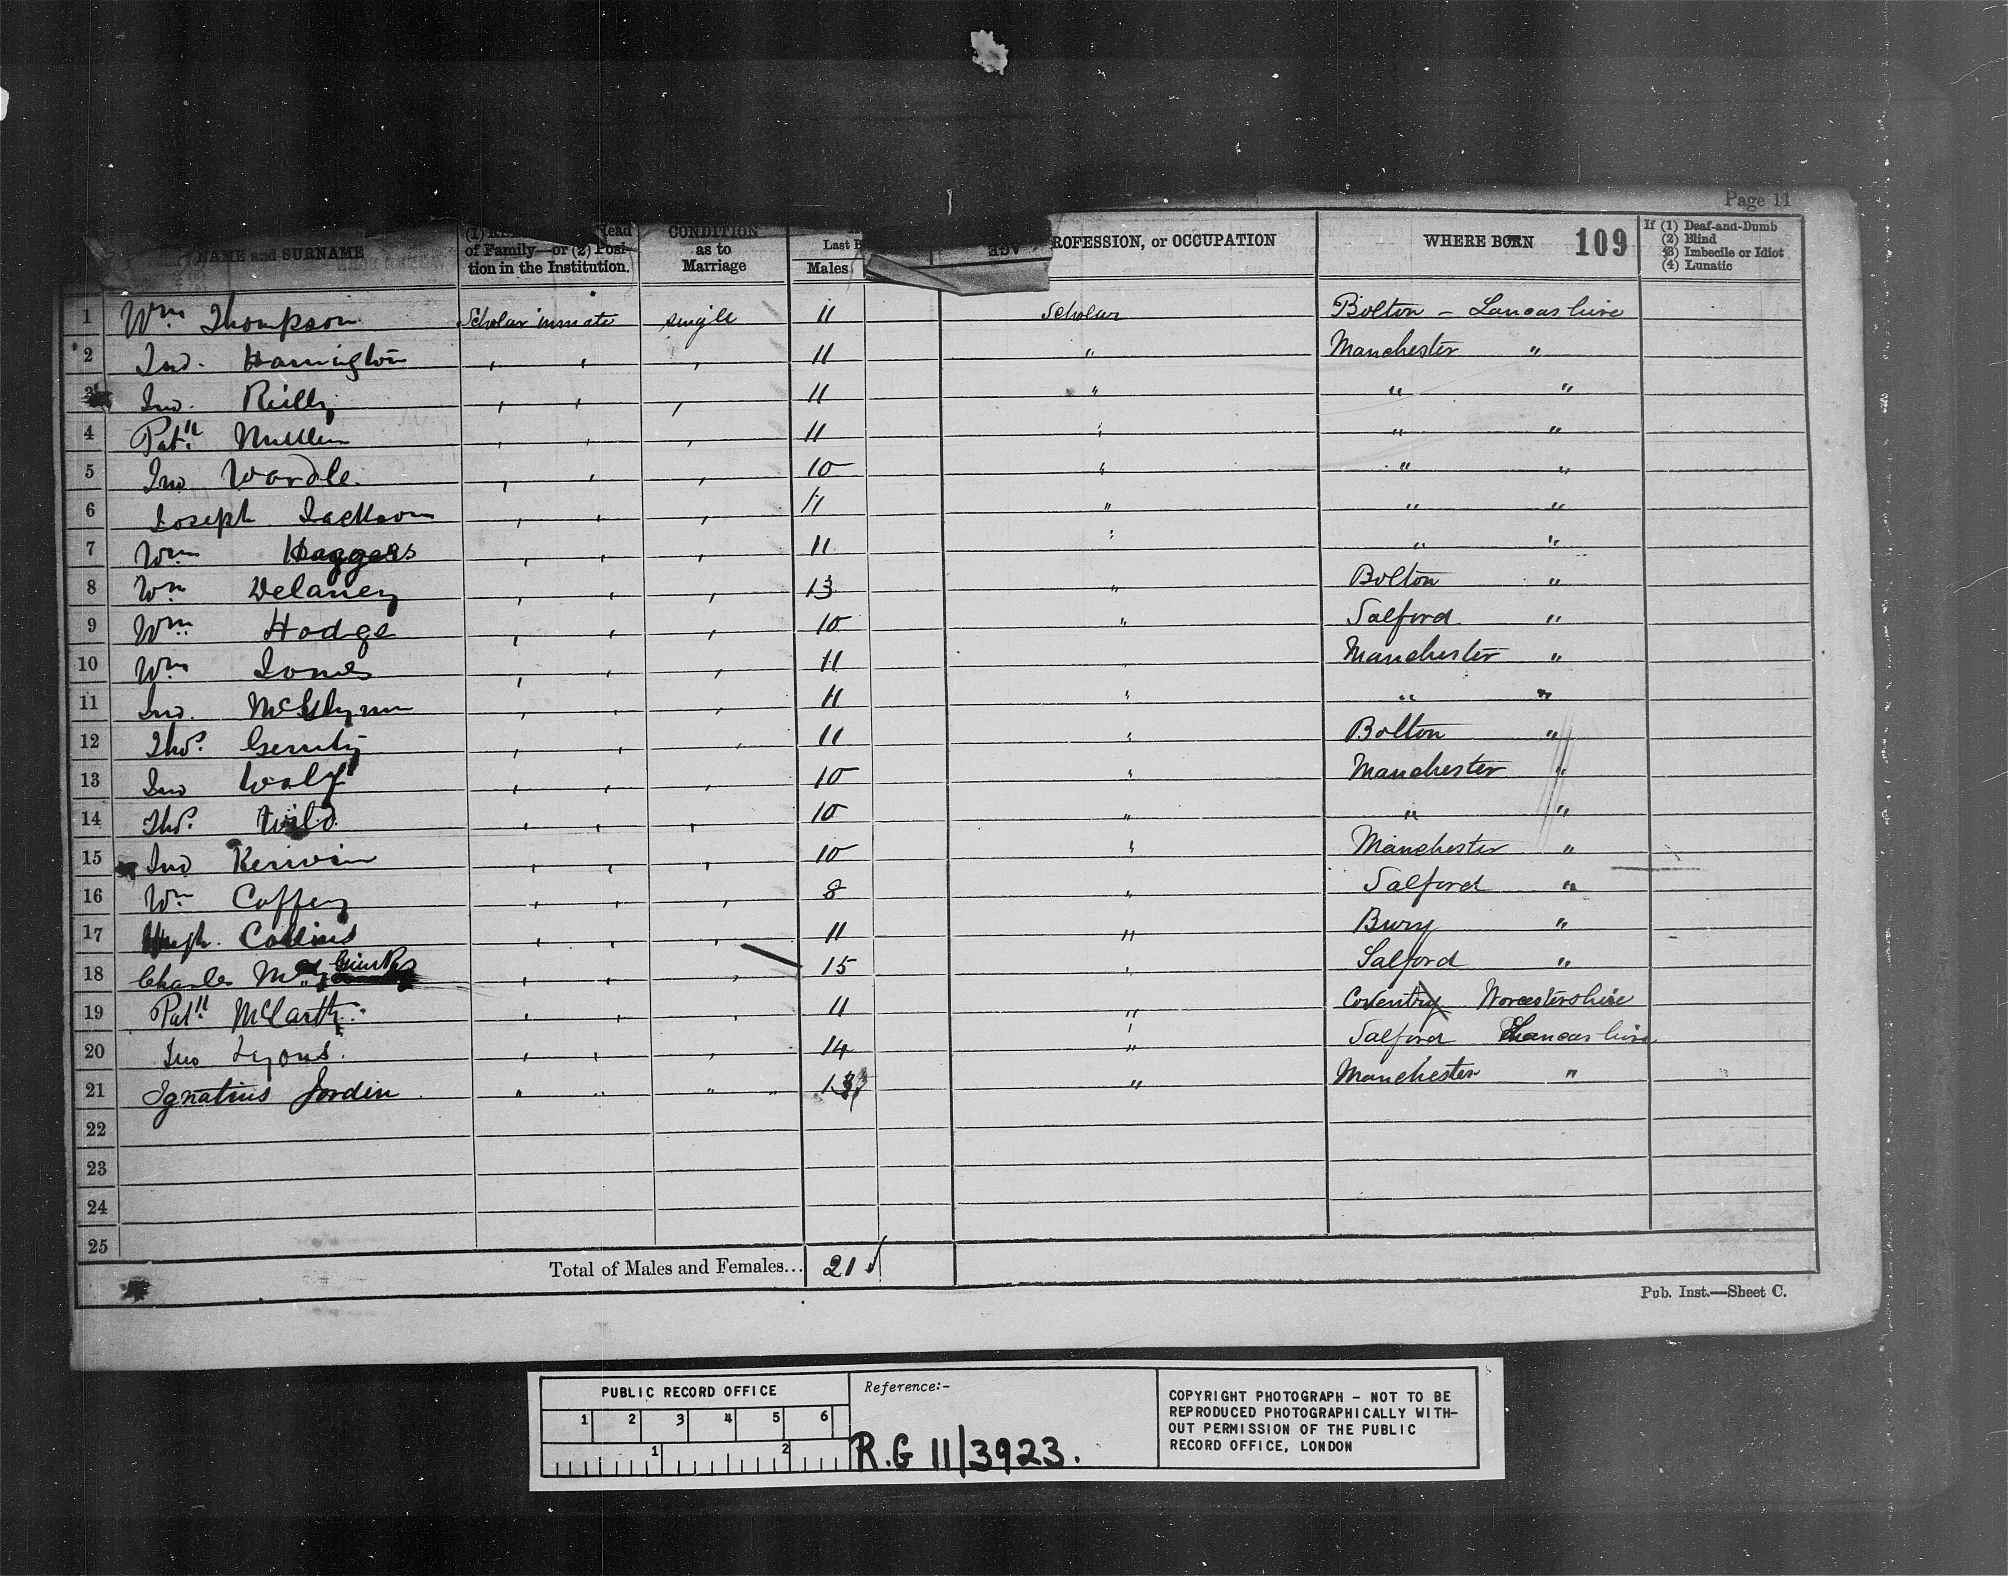 Page 11
NAME and SURNAME of Family—or (2) Posi- tion in the Institution. CONDITION as to Marriage Last B Males AGE ROFESSION, or OCCUPATION WHERE BORN 109 If (1) Deaf-and-Dumb (2) Blind (3) Imbecile or Idiot (4) Lunatic
1 Wm Thompson Scholar inmate single 11 Scholar Bolton - Lancashire
2 Jno. Harrington , , , 11 " Manchester "
3 Jno. Reilly , , , 11 " " "
4 Patk Mullen , , , 11 " " "
5 Jno Wardle. , , , 10 " " "
6 Joseph Jackson , , , 11 " " "
7 Wm Haggers , , , 11 " " "
8 Wm Delaney , , , 13 " Bolton "
9 Wm Hodge , , , 10 " Salford "
10 Wm Jones , , , 11 " Manchester "
11 Jno. McGlynn , , , 11 " " "
12 Thos. Gerrity , , , 11 " Bolton "
13 Jno Wolf , , , 10 " Manchester "
14 Thos. Wild , , , 10 " " "
15 Jno Kerwin , , , 10 " Manchester "
16 Wm Coffey , , , 8 " Salford "
17 Hugh. Collins , , , 11 " Bury "
18 Charles , , , 15 " Salford "
19 Patk McCarthy , , , 11 " Coventry Worcestershire
20 Jno Lyons. , , , 14 " Salford Lancashire
21 Ignatius Jordin " " " 13 " Manchester "
22
23
24
25
Total of Males and Females... 21
Pub. Inst.—Sheet C.
PUBLIC RECORD OFFICE
1 2 3 4 5 6
1 2
Reference:-
R.G 11/3923.
COPYRIGHT PHOTOGRAPH - NOT TO BE
REPRODUCED PHOTOGRAPHICALLY WITH-
OUT PERMISSION OF THE PUBLIC
RECORD OFFICE, LONDON